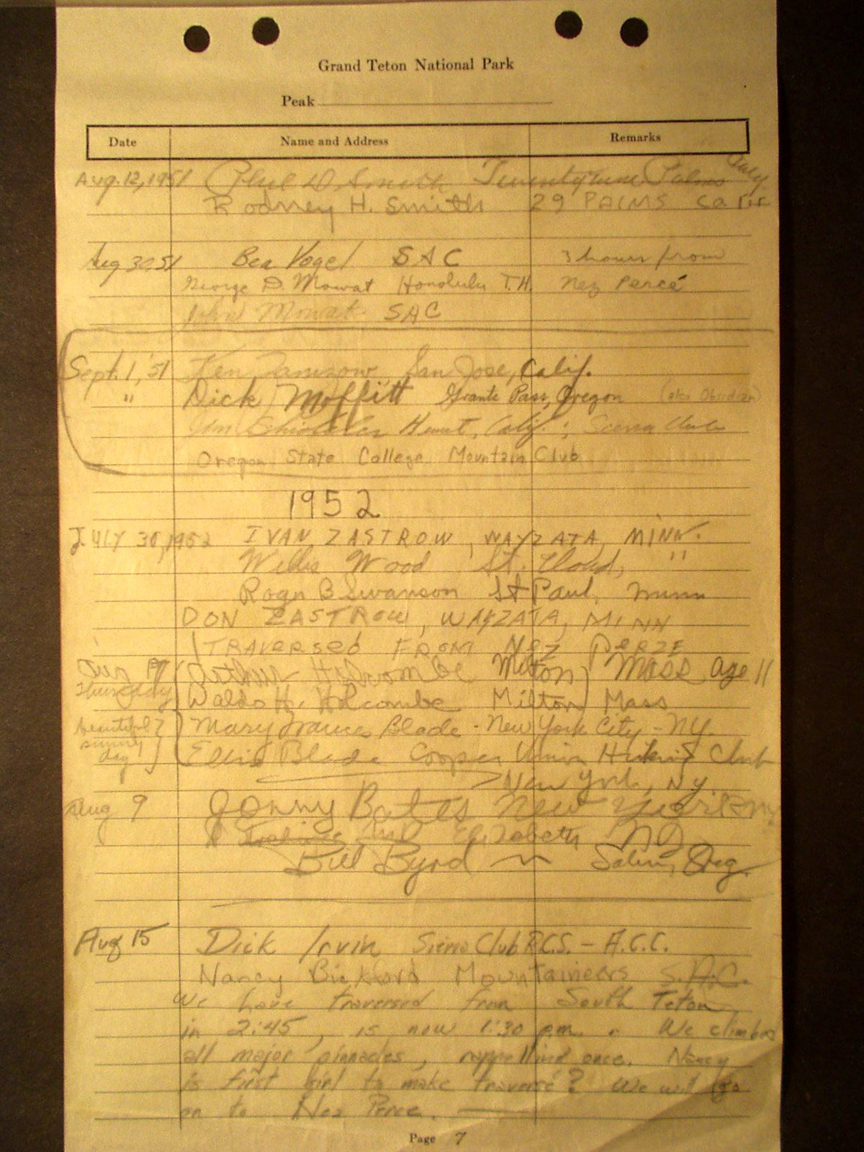 Grand Teton National Park
Peak
Date Name and Address Remarks
Aug. 12, 1951 Phil D. Smith Twentynine Palms
Rodney H. Smith 29 PALMS Calif
Aug 30, 51 Bea Vogel SAC 3 hours from
George D. Mowat Honolulu T.H. Nez Percé
John Mowat SAC
Sept. 1, '51 Ken San Jose, Calif.
" Dick Moffitt Grants Pass, Oregon (aka Obsidian)
Jim Hemet, Calif; Sierra Club
Oregon State College Mountain Club
1952
JULY 30, 1952 IVAN ZASTROW, WAYZATA, MINN.
Willis Wood St. Cloud, "
Roger B Swanson St Paul, Minn
DON ZASTROW, WAYZATA, MINN
TRAVERSED FROM NEZ PERZE
Aug 7 Arthur Holcombe Milton Mass age 11
Thursday Waldo H. Holcombe Milton Mass
beautiful Mary France Blade - New York City - NY.
sunny
day Ellis Blade Cooper Union Hiking Club
New York, NY
Aug 9 Jonny Bates New York NY
Elizabeth NJ
Bill Byrd ~ Salem, Oreg.
Aug 15 Dick Irvin Sierra Club R.C.S. - A.C.C.
Nancy Bickford Mountaineers S.A.C.
We have traversed from South Teton
in 2:45, is now 1:30 p.m. We climbed
all major pinnacles, rappelling once. Nancy
is first girl to make traverse? We will go
on to Nez Perce.
Page 7